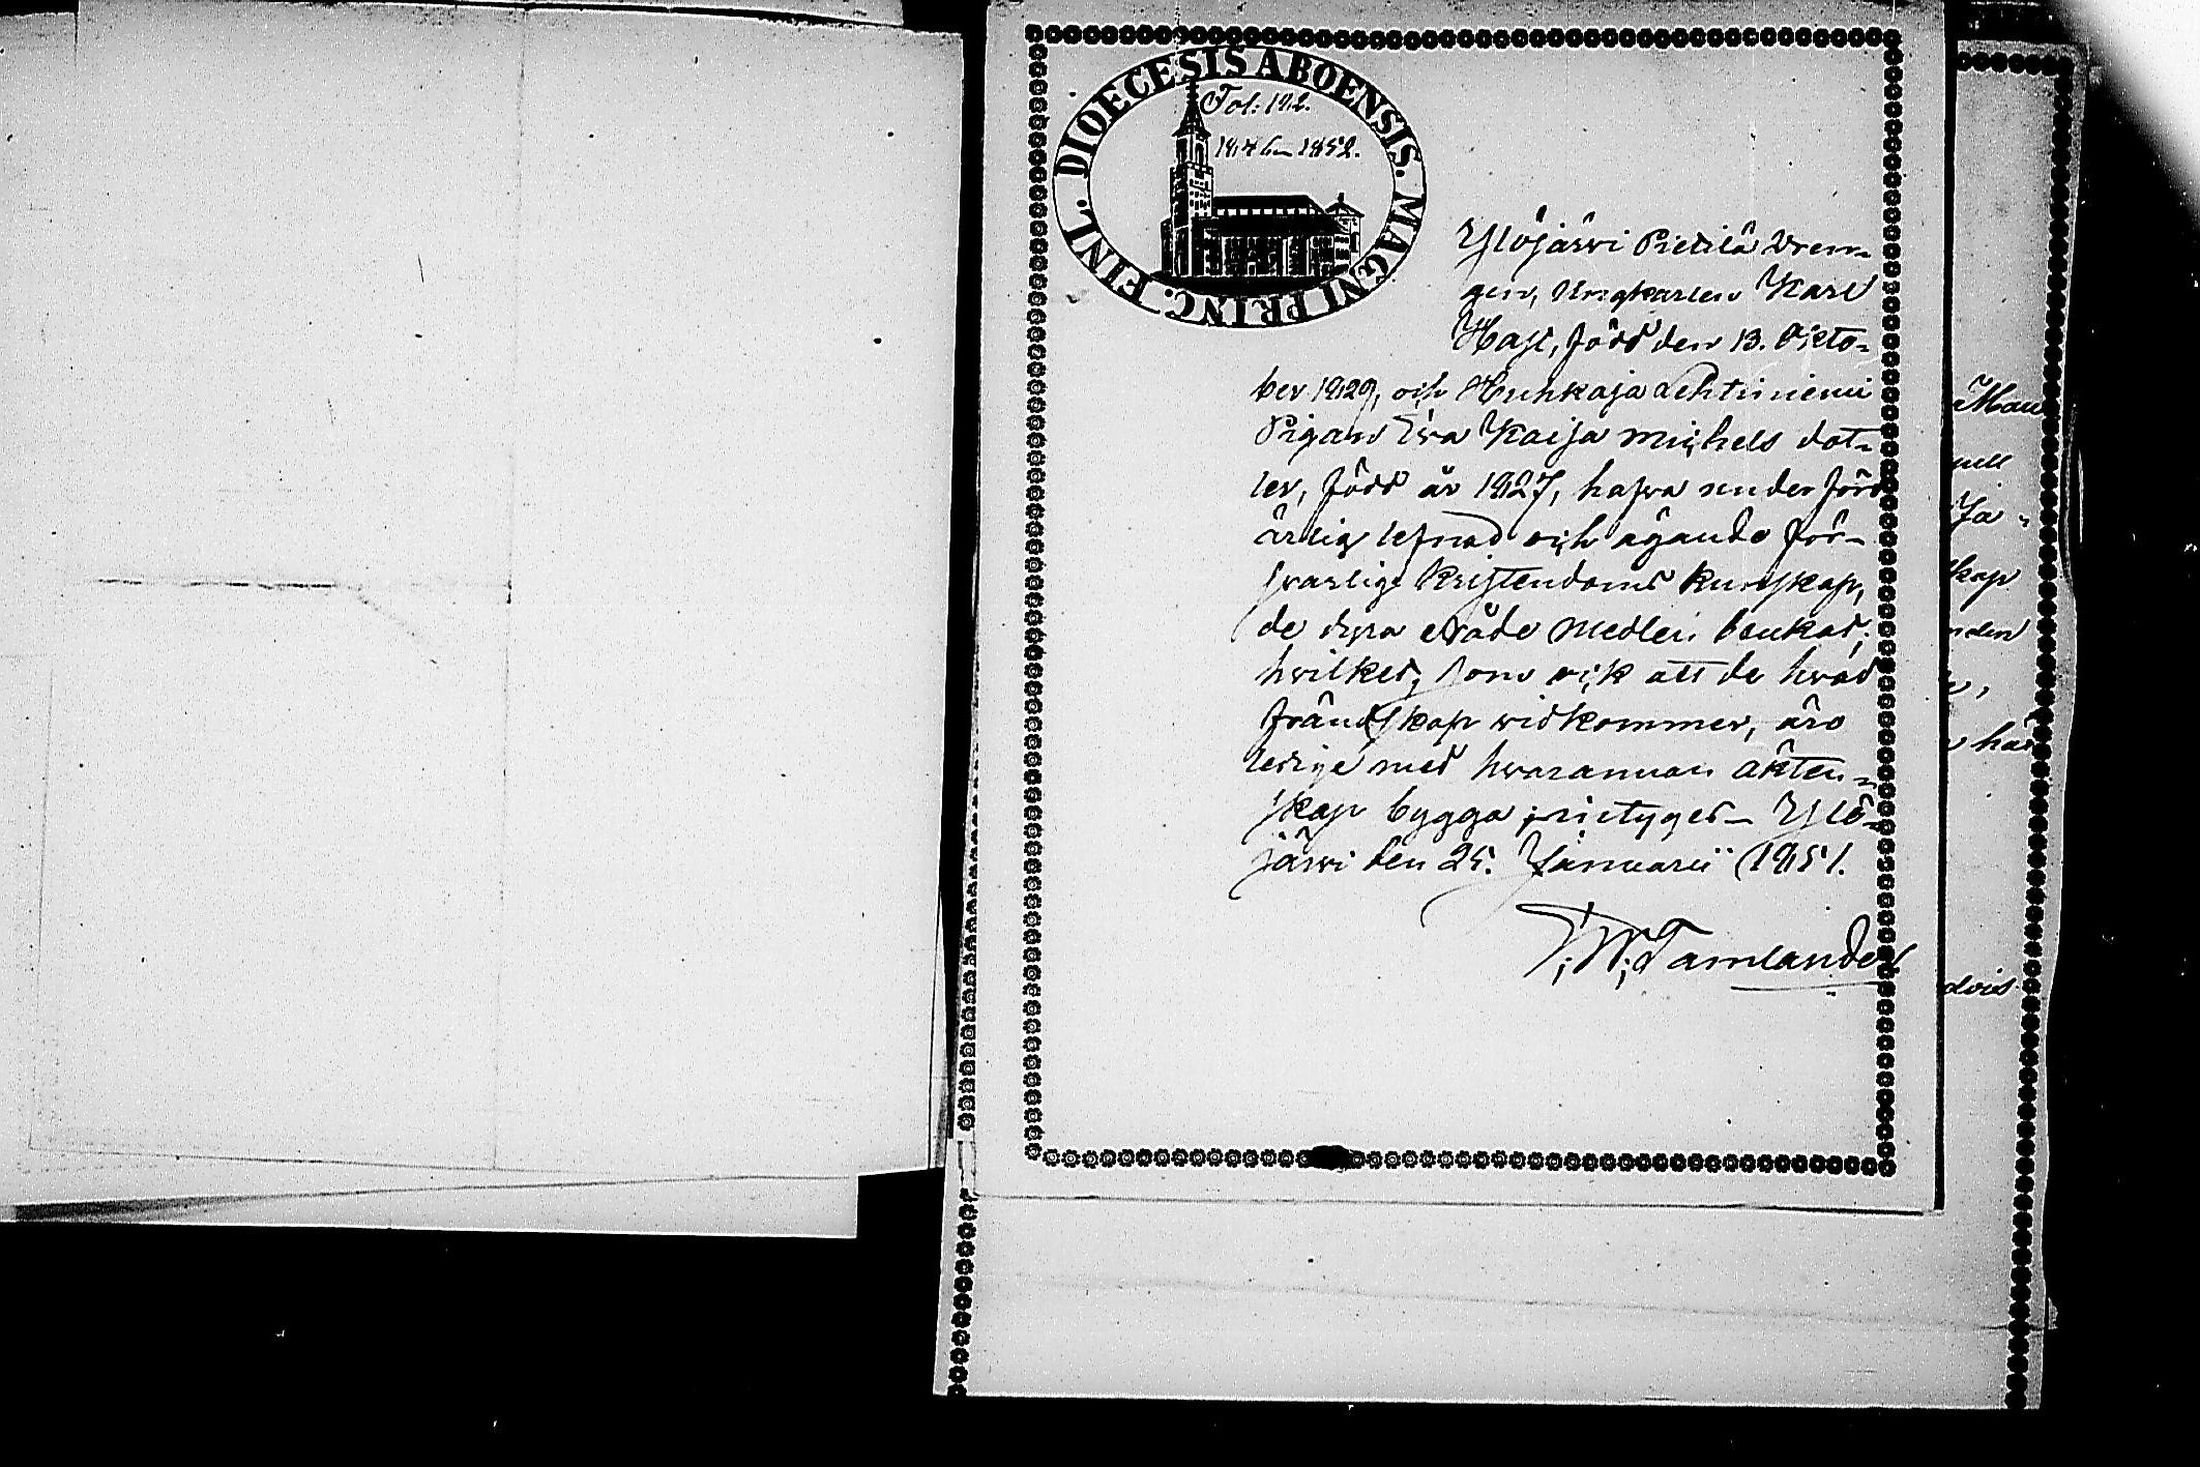 DIOECESIS ABOENSIS. MAGNI PRINC. FINL.
Fol: 192.
1852.
Ylöjärvi Pietilä Dren-
gen, Ungkarlen Karl
Hast, född den 13. Octo-
ber 1829, och Huhkaja Lehtiniemi
Pigan Eva Kaisa Michels dot-
ter, född år 1827, hafva under förd
ärlig lefnad och ägande för-
svarlig Kristendoms kunskap,
de dyra nåde Medlen bewkat;
hvilket, som ock att de hvad
frändskap vidkommer, äro
ledige med hvarannan äkten-
skap bygga; intyges. Ylö-
järvi den 25. Januarii 1851.
F; W; Tamlander
Man
nell
Ja-
kap
nden
har
dvis